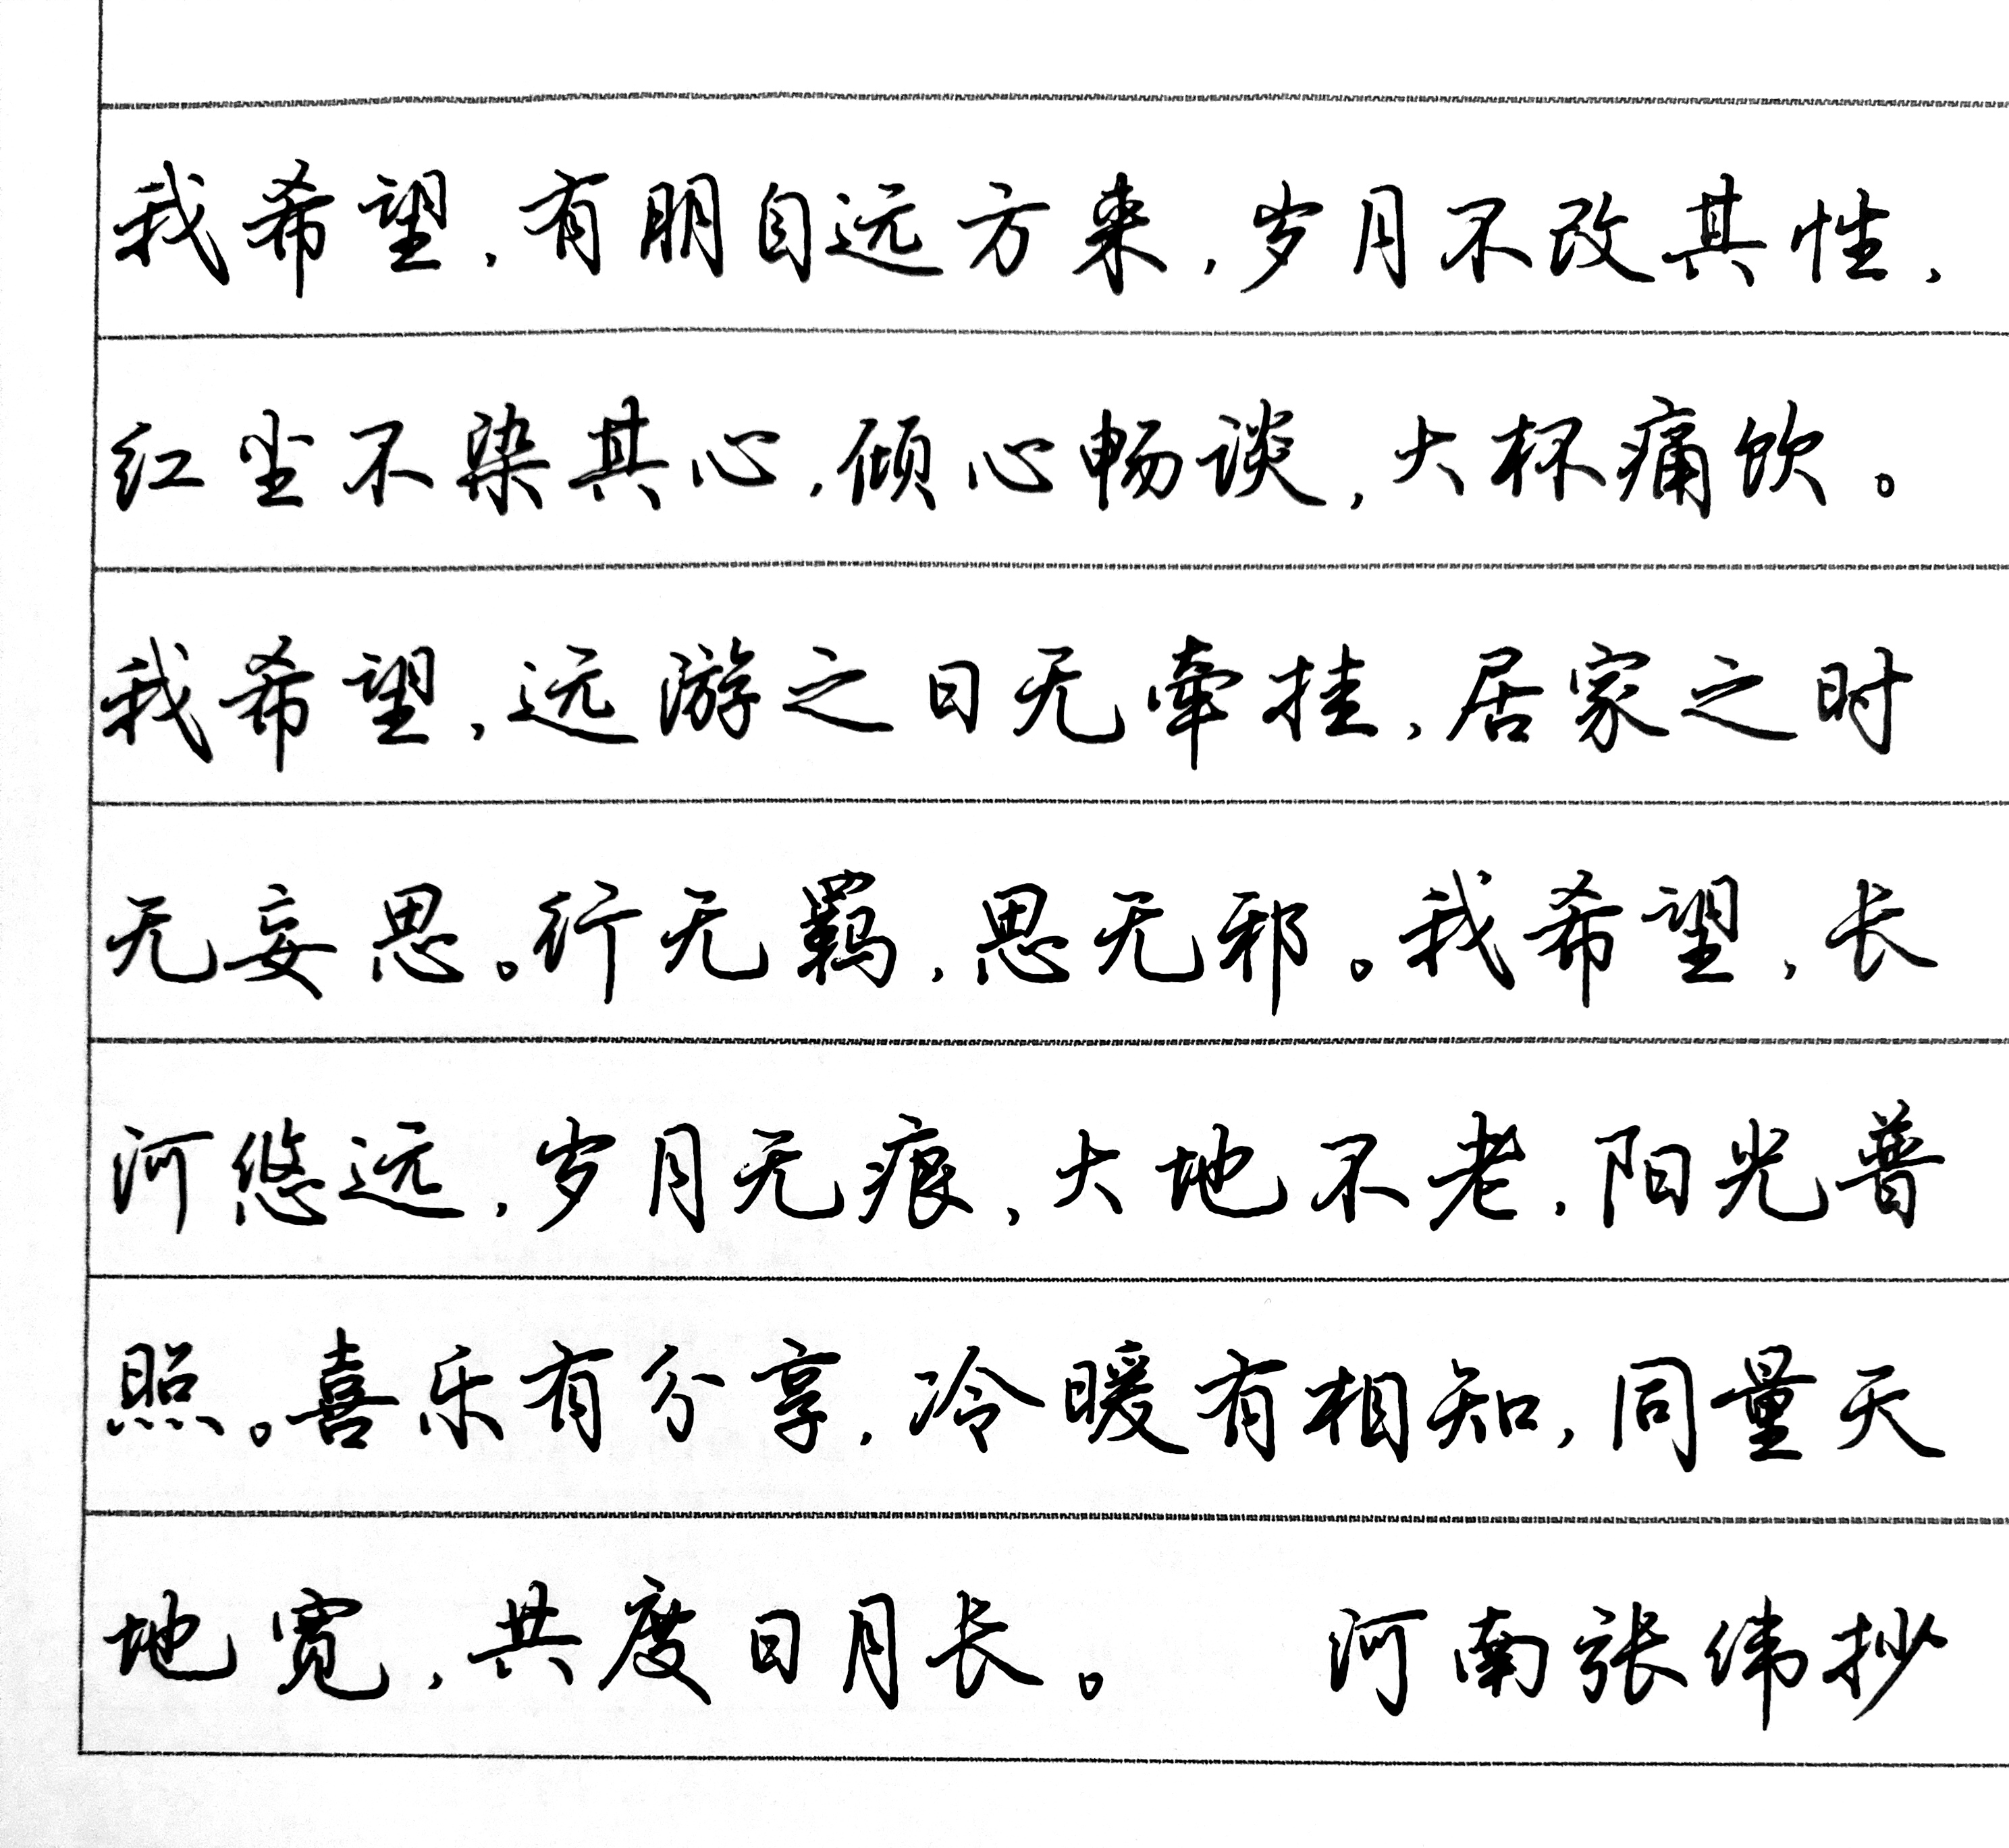 我希望，有朋自远方来，岁月不改其性，
红尘不染其心，倾心畅谈，大杯痛饮。
我希望，远游之日无牵挂，居家之时
无妄思。行无羁，思无邪。我希望，长
河悠远，岁月无痕，大地不老，阳光普
照。喜乐有分享，冷暖有相知，同量天
地宽，共度日月长。 河南张伟抄